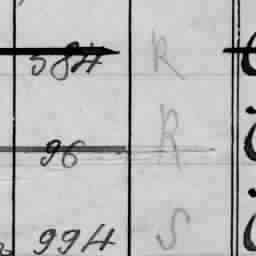 584 R
96 R
994 S